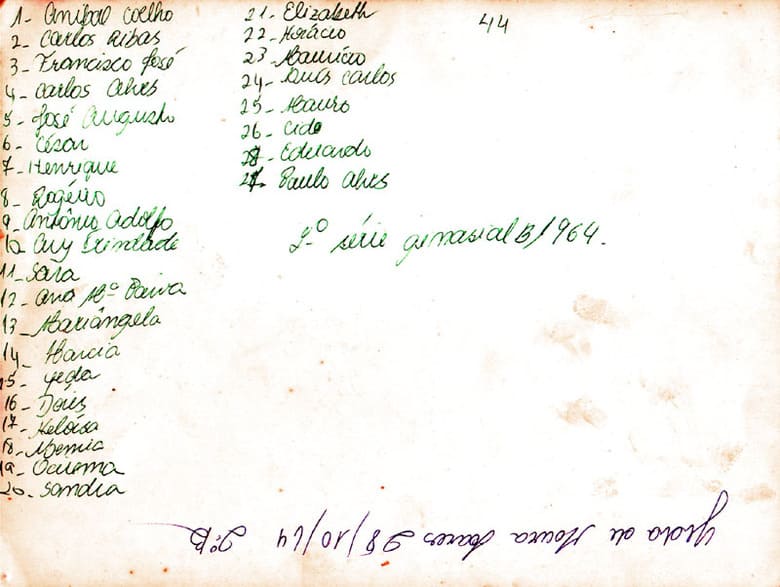 1- Anibal Coelho
2- Carlos Ribas
3- Francisco José
4- Carlos Alves
5- José Augusto
6- César
7- Henrique
8- Rogério
9- Antônio Adolfo
10- Ary Trindade
11- Sara
12- Ana Mª Paiva
13- Mariângela
14- Marcia
15- Yeda
16- Doris
17- Heloísa
18- Noemia
19-
20- Sandra
21- Elizabeth
22- Horácio
23- Maurício
24- Luís Carlos
25- Mauro
26- Cid
Eduardo
Paulo Alves
44
2º série ginasial B/1964.
Yedda de Moura Soares 28/10/64 2º B